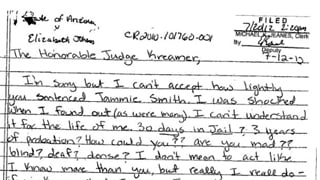 State of Arizona
v
Elizabeth Johnson
CR2010-101760-001
FILED
7/20/12 2:00pm
MICHAEL K. JEANES, Clerk
By
Deputy
7-12-12
The Honorable Judge Kreamer,
I'm sorry but I can't accept how lightly
you sentenced Tammie Smith. I was shocked
when I found out (as were many). I can't understand
it for the life of me. 30 days in Jail? 3 years
of probation? How could you?? Are you mad??
blind? deaf? dense? I don't mean to act like
I know more than you, but really I really do-